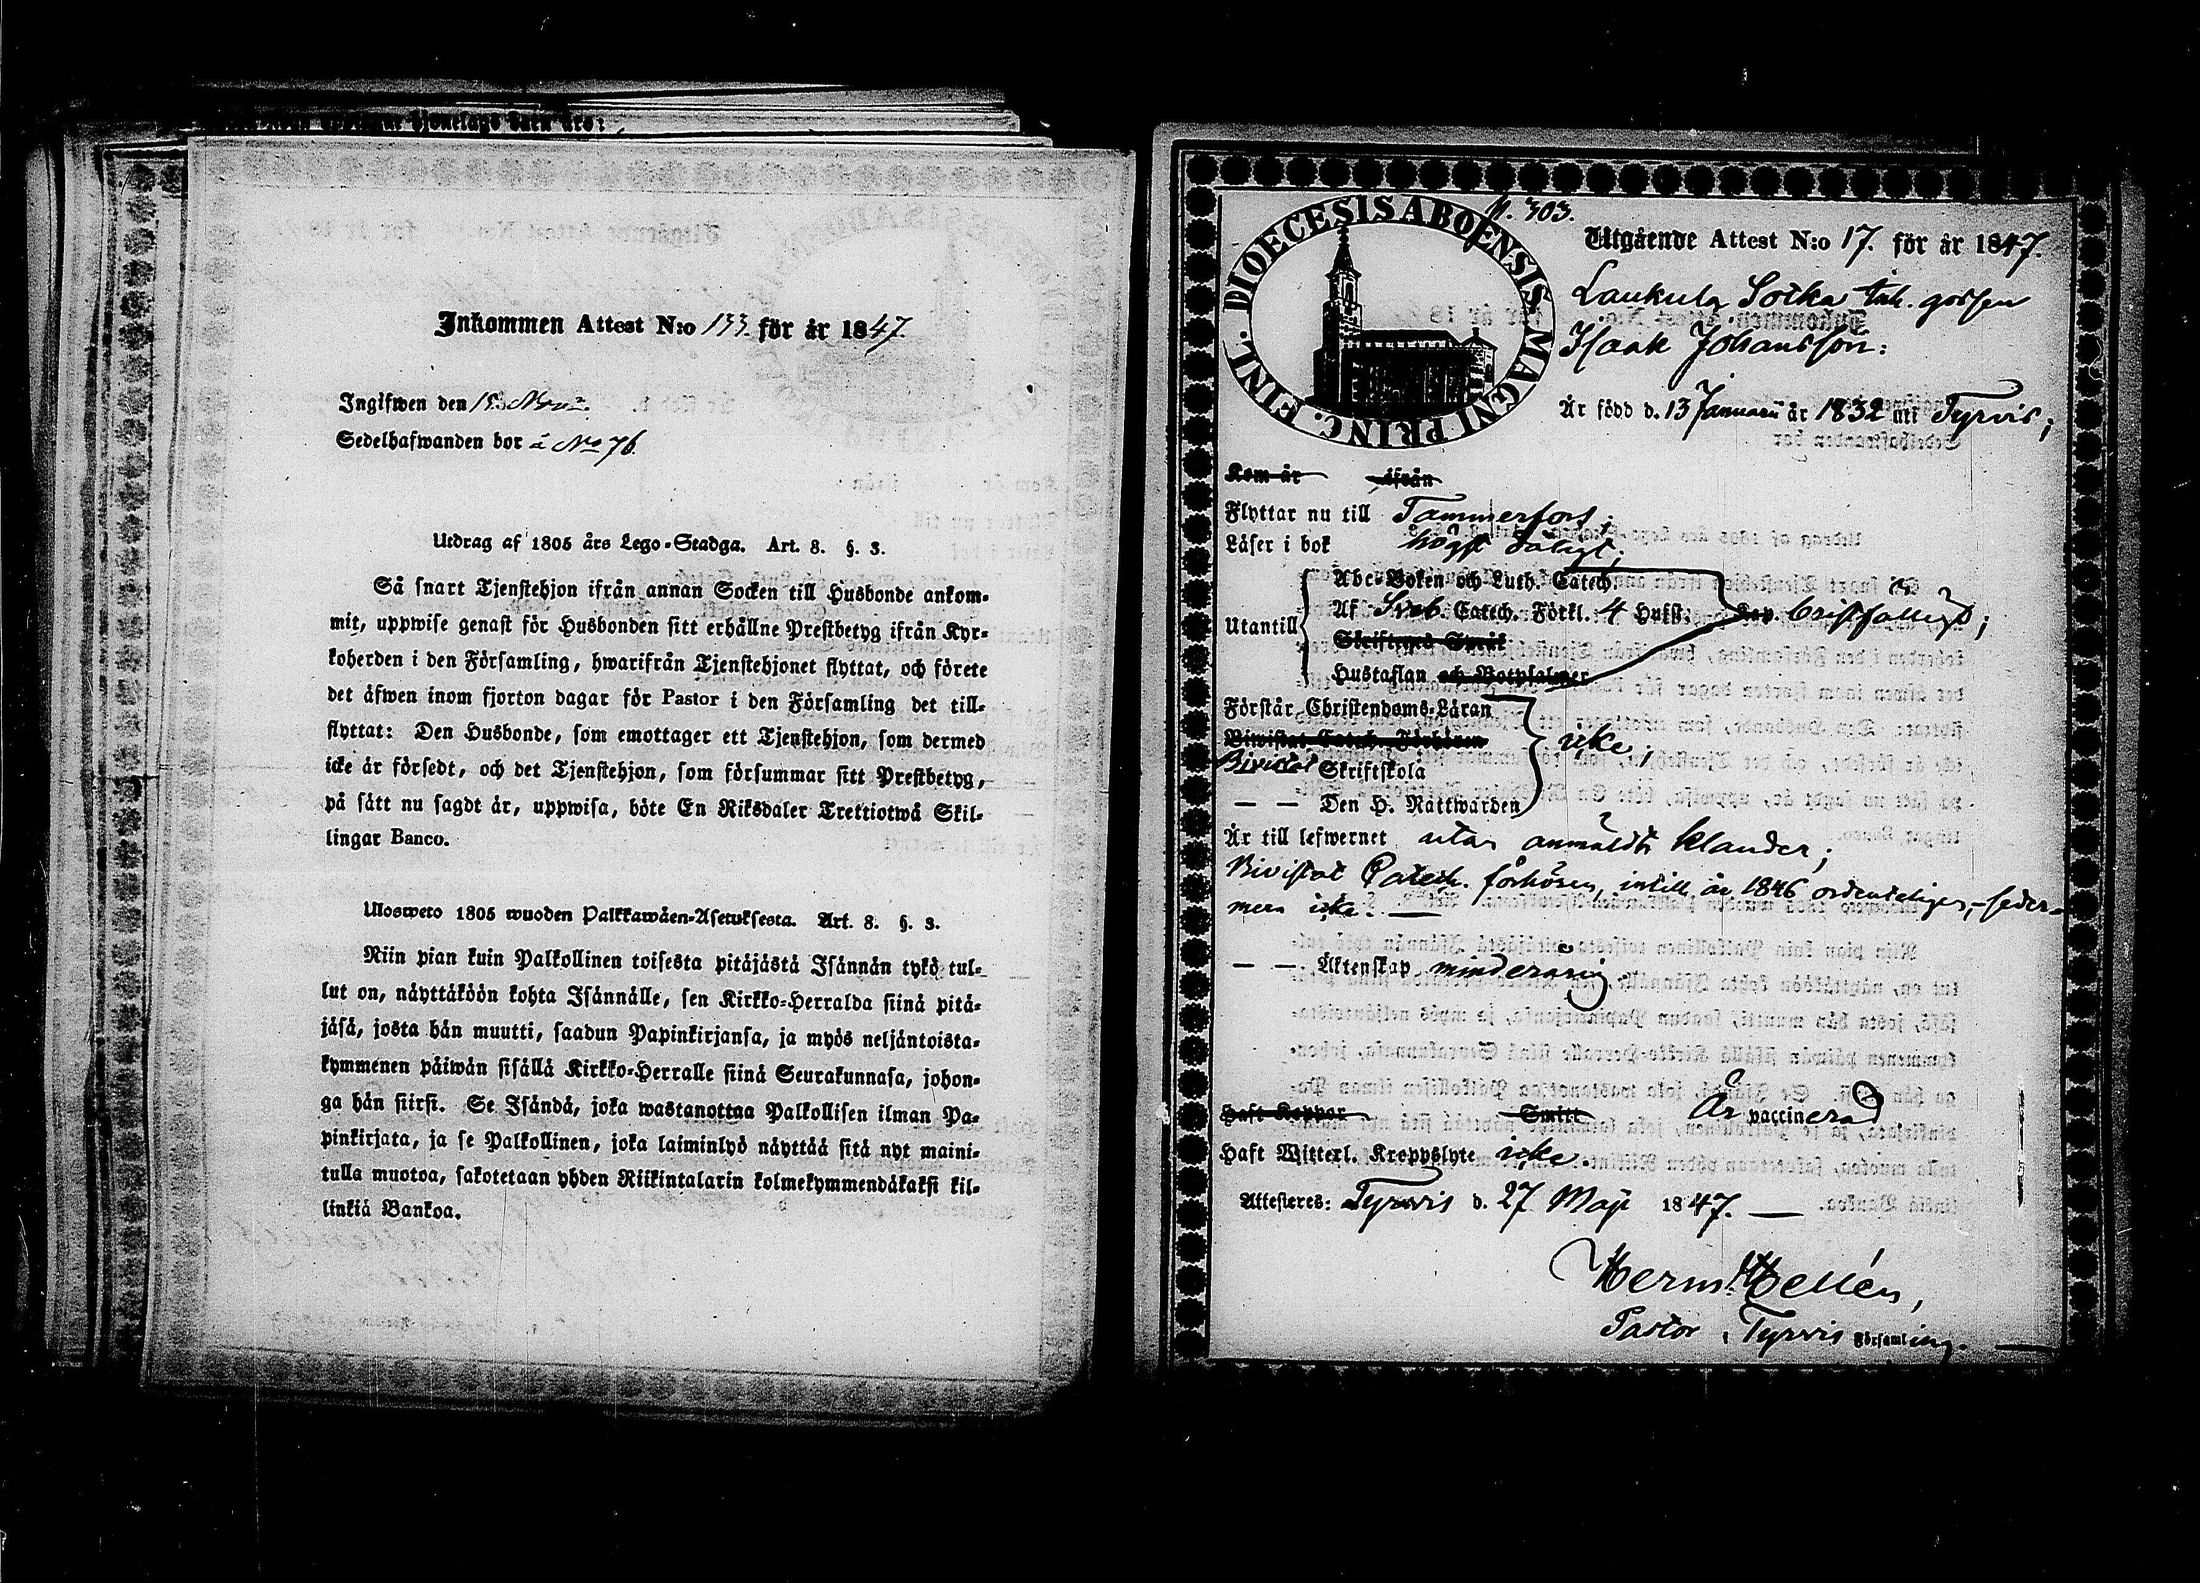 Inkommen Attest N:o 133. för år 1847.
Ingifwen den Nov.
Sedelhafwanden bor å No 76.
Utdrag af 1805 års Lego-Stadga. Art. 8. §. 3.
Så snart Tjenstehjon ifrån annan Socken till Husbonde ankom-
mit, uppwise genast för Husbonden sitt erhållne Prestbetyg ifrån Kyr-
koherden i den Församling, hwarifrån Tjenstehjonet flyttat, och förete
det äfwen inom fjorton dagar för Pastor i den Församling det till-
flyttat: Den Husbonde, som emottager ett Tjenstehjon, som dermed
icke är försedt, och det Tjenstehjon, som försummar sitt Prestbetyg,
på sätt nu sagdt är, uppwisa, böte En Riksdaler Trettiotwå Skil-
lingar Banco.
Ulosweto 1805 wuoden Palkkawäen-Asetuksesta. Art. 8. §. 3.
Niin pian kuin Palkollinen toisesta pitäjästä Isännän tykö tul-
lut on, näyttäköön kohta Isännälle, sen Kirkko-Herralda siinä pitä-
jäsä, josta hän muutti, saadun Papinkirjansa, ja myös neljäntoista-
kymmenen päiwän sisällä Kirkko-Herralle siinä Seurakunnasa, johon-
ga hän siirsi. Se Isändä, joka wastanottaa Palkollisen ilman Pa-
pinkirjata, ja se Palkollinen, joka laiminlyö näyttää sitä nyt maini-
tulla muotoa, sakotetaan yhden Riikintalarin kolmekymmendäkaksi kil-
linkiä Bankoa.
p. 303.
DIOECESIS ABOENSIS MAGNI PRINC. FINL.
Utgående Attest N:o 17. för år 1847.
Laukula Sotka inh. gossen
Isaak Johansson:
Är född d. 13 Januarii år 1832 uti Tyrvis;
Kom år ifrån
Flyttar nu till Tammerfors;
Läser i bok högst dåligt;
Abc-Boken och Luth. Catech.
Utantill Af Sveb. Catech. Förkl. 4 Hufst. Kap. bristfälligt;
Skriftenes Språk
Hustaflan och Botpsalmer
Förstår Christendoms-Läran
Bewistat Catech. Förhören icke;
Bivistat Skriftskola
— — Den H. Nattwarden
Är till lefwernet utan anmäldt klander;
Bivistat Catech. förhören, intill år 1846 ordenteligen, – seder-
mera icke. —
— — Äktenskap minderårig.
Haft Koppor Smitt Är vaccinerad
Haft Witterl. Kroppslyte icke
Attesteres: Tyrvis d. 27 Maji 1847. —
Herm. Hellén,
Pastor i Tyrvis Församling.